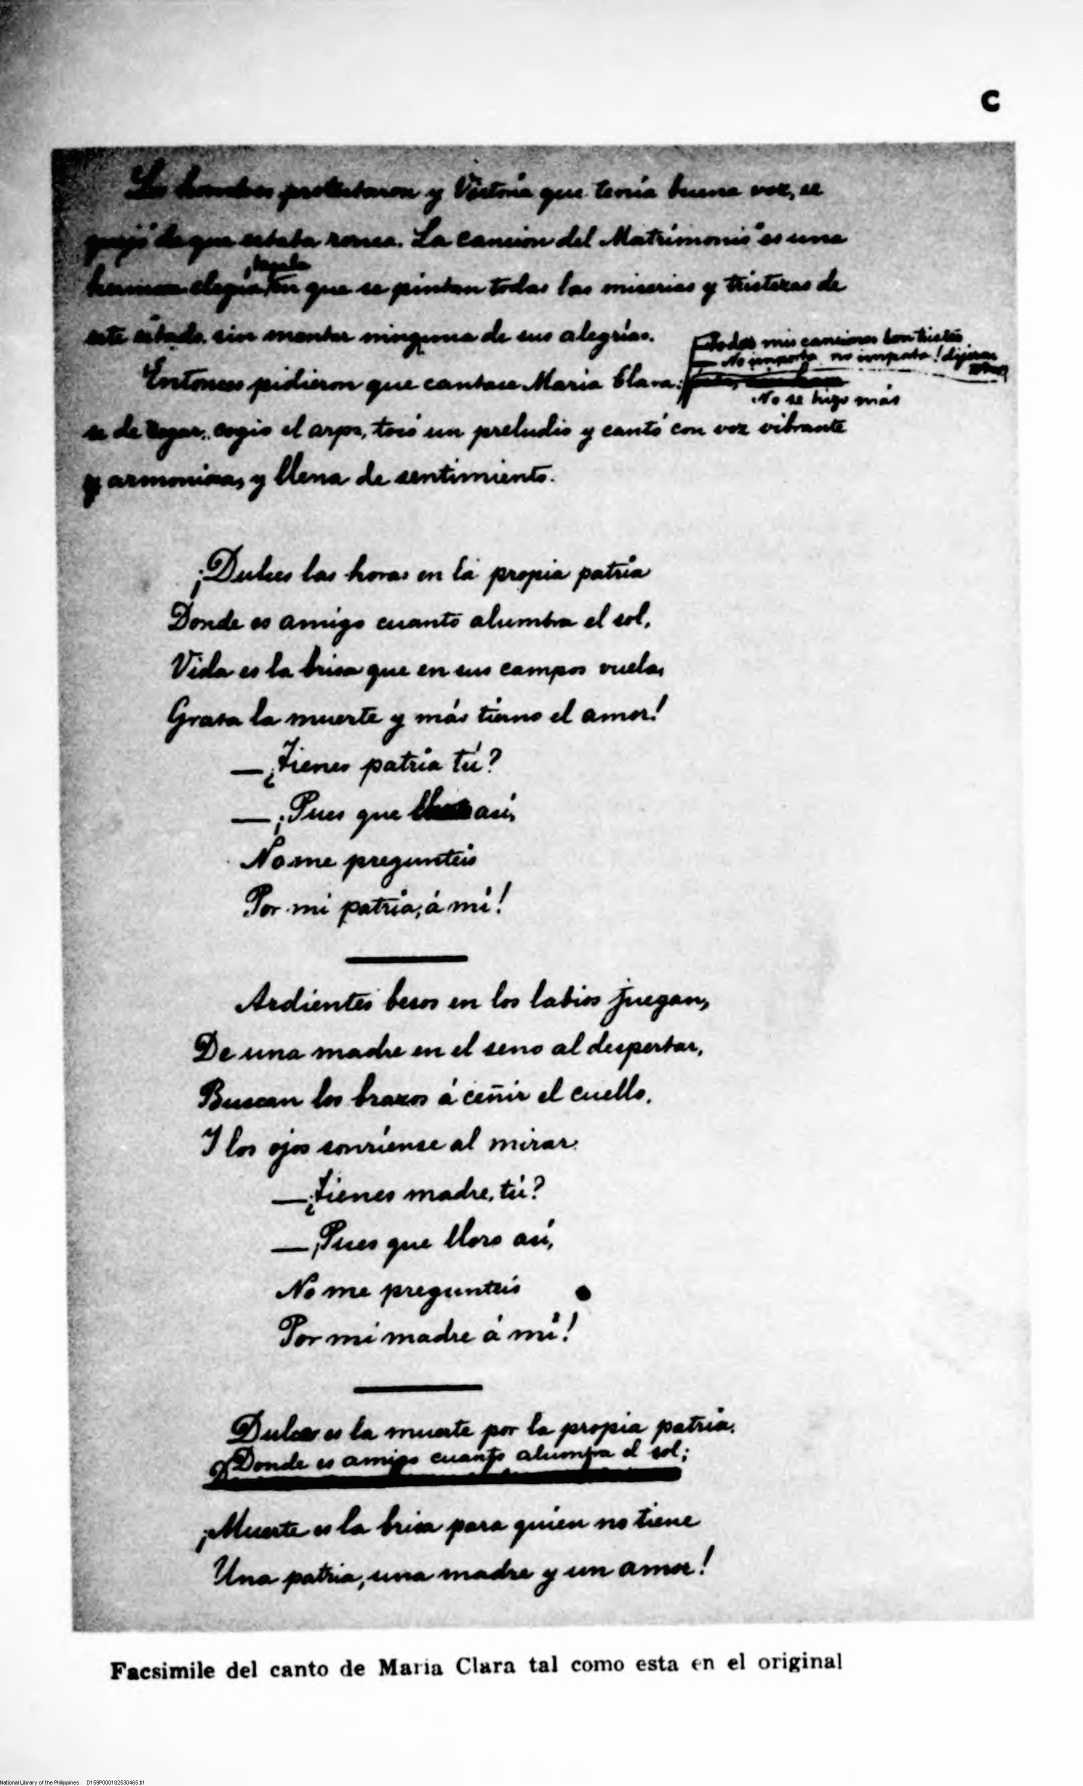 C
Los hombres protestaron y Victoria que tenía buena voz, se
quejó de que estaba ronca. "La Cancion del Matrimonio" es una
tagala
hermosa elegía, en que se pintan todas las miserias y tristezas de
este estado, sin mentar ninguna de sus alegrías.
—Todas mis canciones son tristes
—No importa, no importa! dijeron
Entonces pidieron que cantase María Clara.
No se hizo más
se de rogar, cogió el arpa, tocó un preludio y cantó con voz vibrante
y armoniosa, y llena de sentimiento.
¡Dulces las horas en la propia patria
Donde es amigo cuanto alumbra el sol,
Vida es la brisa que en sus campos vuela,
Grata la muerte y más tierno el amor!
—¿Tienes patria tú?
—¡Pues que así,
No me pregunteis
Por mi patria, á mí!
Ardientes besos en los labios juegan,
De una madre en el seno al despertar,
Buscan los brazos á ceñir el cuello,
Y los ojos sonríense al mirar.
—¿Tienes madre, tú?
—¡Pues que lloro así,
No me pregunteis
Por mi madre á mí!
Dulce es la muerte por la propia patria,
Donde es amigo cuanto alumbra el sol;
¡Muerte es la brisa para quien no tiene
Una patria, una madre y un amor!
Facsimile del canto de Maria Clara tal como esta en el original
National Library of the Philippines D159P000102530465.tif